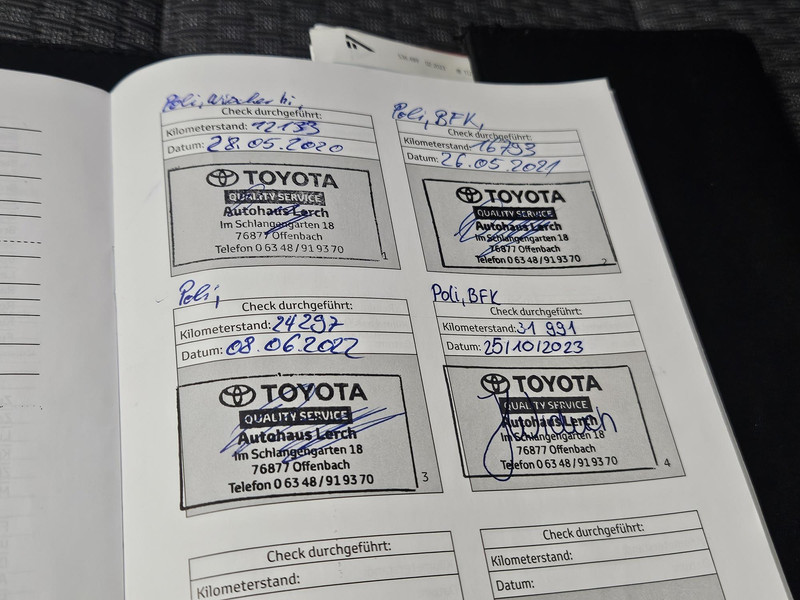 Poli,
Check durchgeführt:
Kilometerstand: 12133
Datum: 28.05.2020
TOYOTA
QUALITY SERVICE
Autohaus Lerch
Im Schlangengarten 18
76877 Offenbach
Telefon 0 63 48 / 91 93 70
1
Poli, BFK,
Check durchgeführt:
Kilometerstand: 16793
Datum: 26.05.2021
TOYOTA
QUALITY SERVICE
Autohaus Lerch
Im Schlangengarten 18
76877 Offenbach
Telefon 0 63 48 / 91 93 70
2
Poli,
Check durchgeführt:
Kilometerstand: 24297
Datum: 08.06.2022
TOYOTA
QUALITY SERVICE
Autohaus Lerch
Im Schlangengarten 18
76877 Offenbach
Telefon 0 63 48 / 91 93 70
3
Poli, BFK
Check durchgeführt:
Kilometerstand: 31 991
Datum: 25/10/2023
TOYOTA
QUALITY SERVICE
Autohaus Lerch
Im Schlangengarten 18
76877 Offenbach
Telefon 0 63 48 / 91 93 70
4
Check durchgeführt:
Kilometerstand:
Check durchgeführt:
Kilometerstand:
Datum: